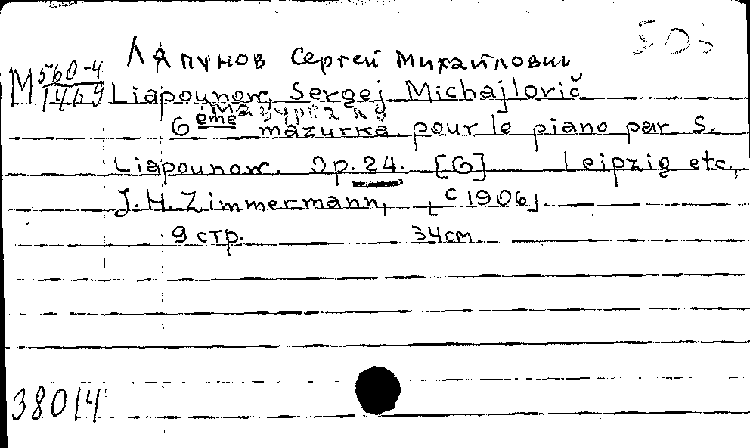 Ляпунов Сергей Михайлович
М 560-4
1469
Liapounow, Sergej Michajlovič
6 ème mazurka pour le piano par S.
Liapounow. Op. 24. [G] Leipzig etc.,
J. H. Zimmermann, [c 1906].
9 стр. 34 см.
38014